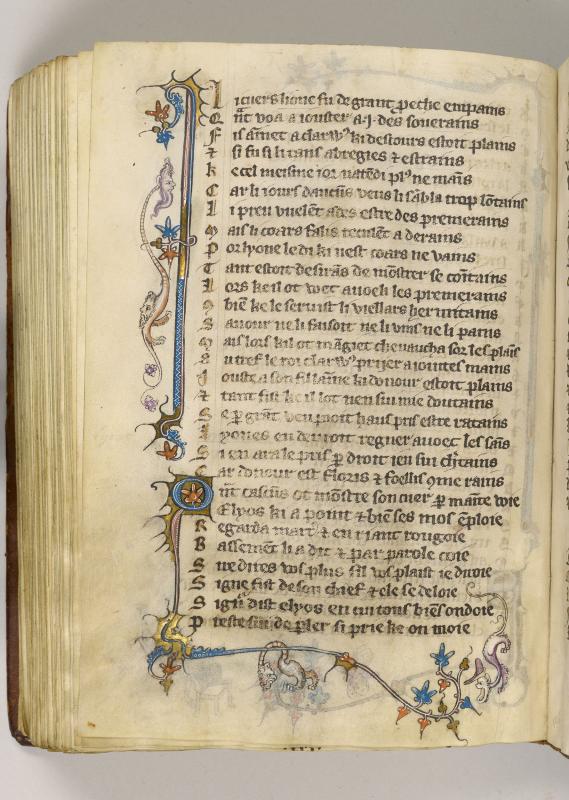 L i cuers houe fu de grant peche enpains
Q nt voa a iouster a .j. des souerains
F is aimet a clarus ki destours estoit plains
Z si fu si li tans abregies z estrains
K e cel meisme ior natendi plus ne mains
C ar li iours dauciis venus li sanbla trop lontains
L i preu vuelent ades estre des premerains
M ais li coars faus reculent a derains
P or lyone le di ki nest coars ne vains
T ant estoit desirans de monstrer se contains
L ors ke il ot wet auoek les premerains
M bien ke le seruist li viellars hermitains
S auour ne li faisoit ne li vins ne li pains
M ais lors kil ot mangiet cheuaucha sor les plains
A u tref le roi clarus prijer a iointes mains
I ouste a son fil laisne ki donour estoit plains
Z tant fist ke il lot nen sui mie doutains
S e par grant veu doit haus pris estre ratains
L yones en deuoit regner auoec les sains
S i en ara le pris par droit ien sui chertains
C ar donour est floris z foellis 9me rains
Q nt cascuns ot monstre son cuer par mainte voie
Elyos ki a point z bien ses mos enploie
R egarda mart z en riant rougoie
B assement li a dit z par parole coie
S ire dites vos plus sil vos plaist ie diroie
S igne fist de son chief z ele se desloie
S ignur dist elyos en cui tous biens ondoie
P rieste sui de parler si prie ke on moie